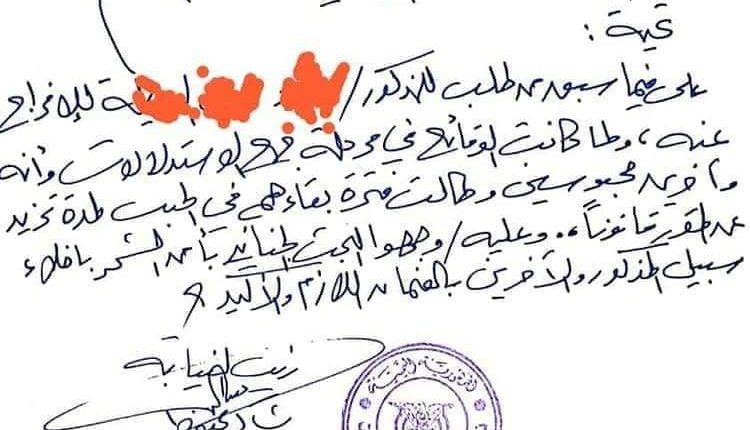 تحية :
على فيما سبق من طلب المذكور / للإفراج
عنه ، ولما كانت الوقائع في مرحلة جمع الاستدلالات وأنه
وآخرين محبوسين وطالت فترة بقاءهم في الحبس لمدة تزيد
عن المقرر قانوناً .. وعليه / وجهوا البحث الجنائي بـ بإخلاء
سبيل المذكور والآخرين بالضمان اللازم والأكيد
الجمهورية اليمنية